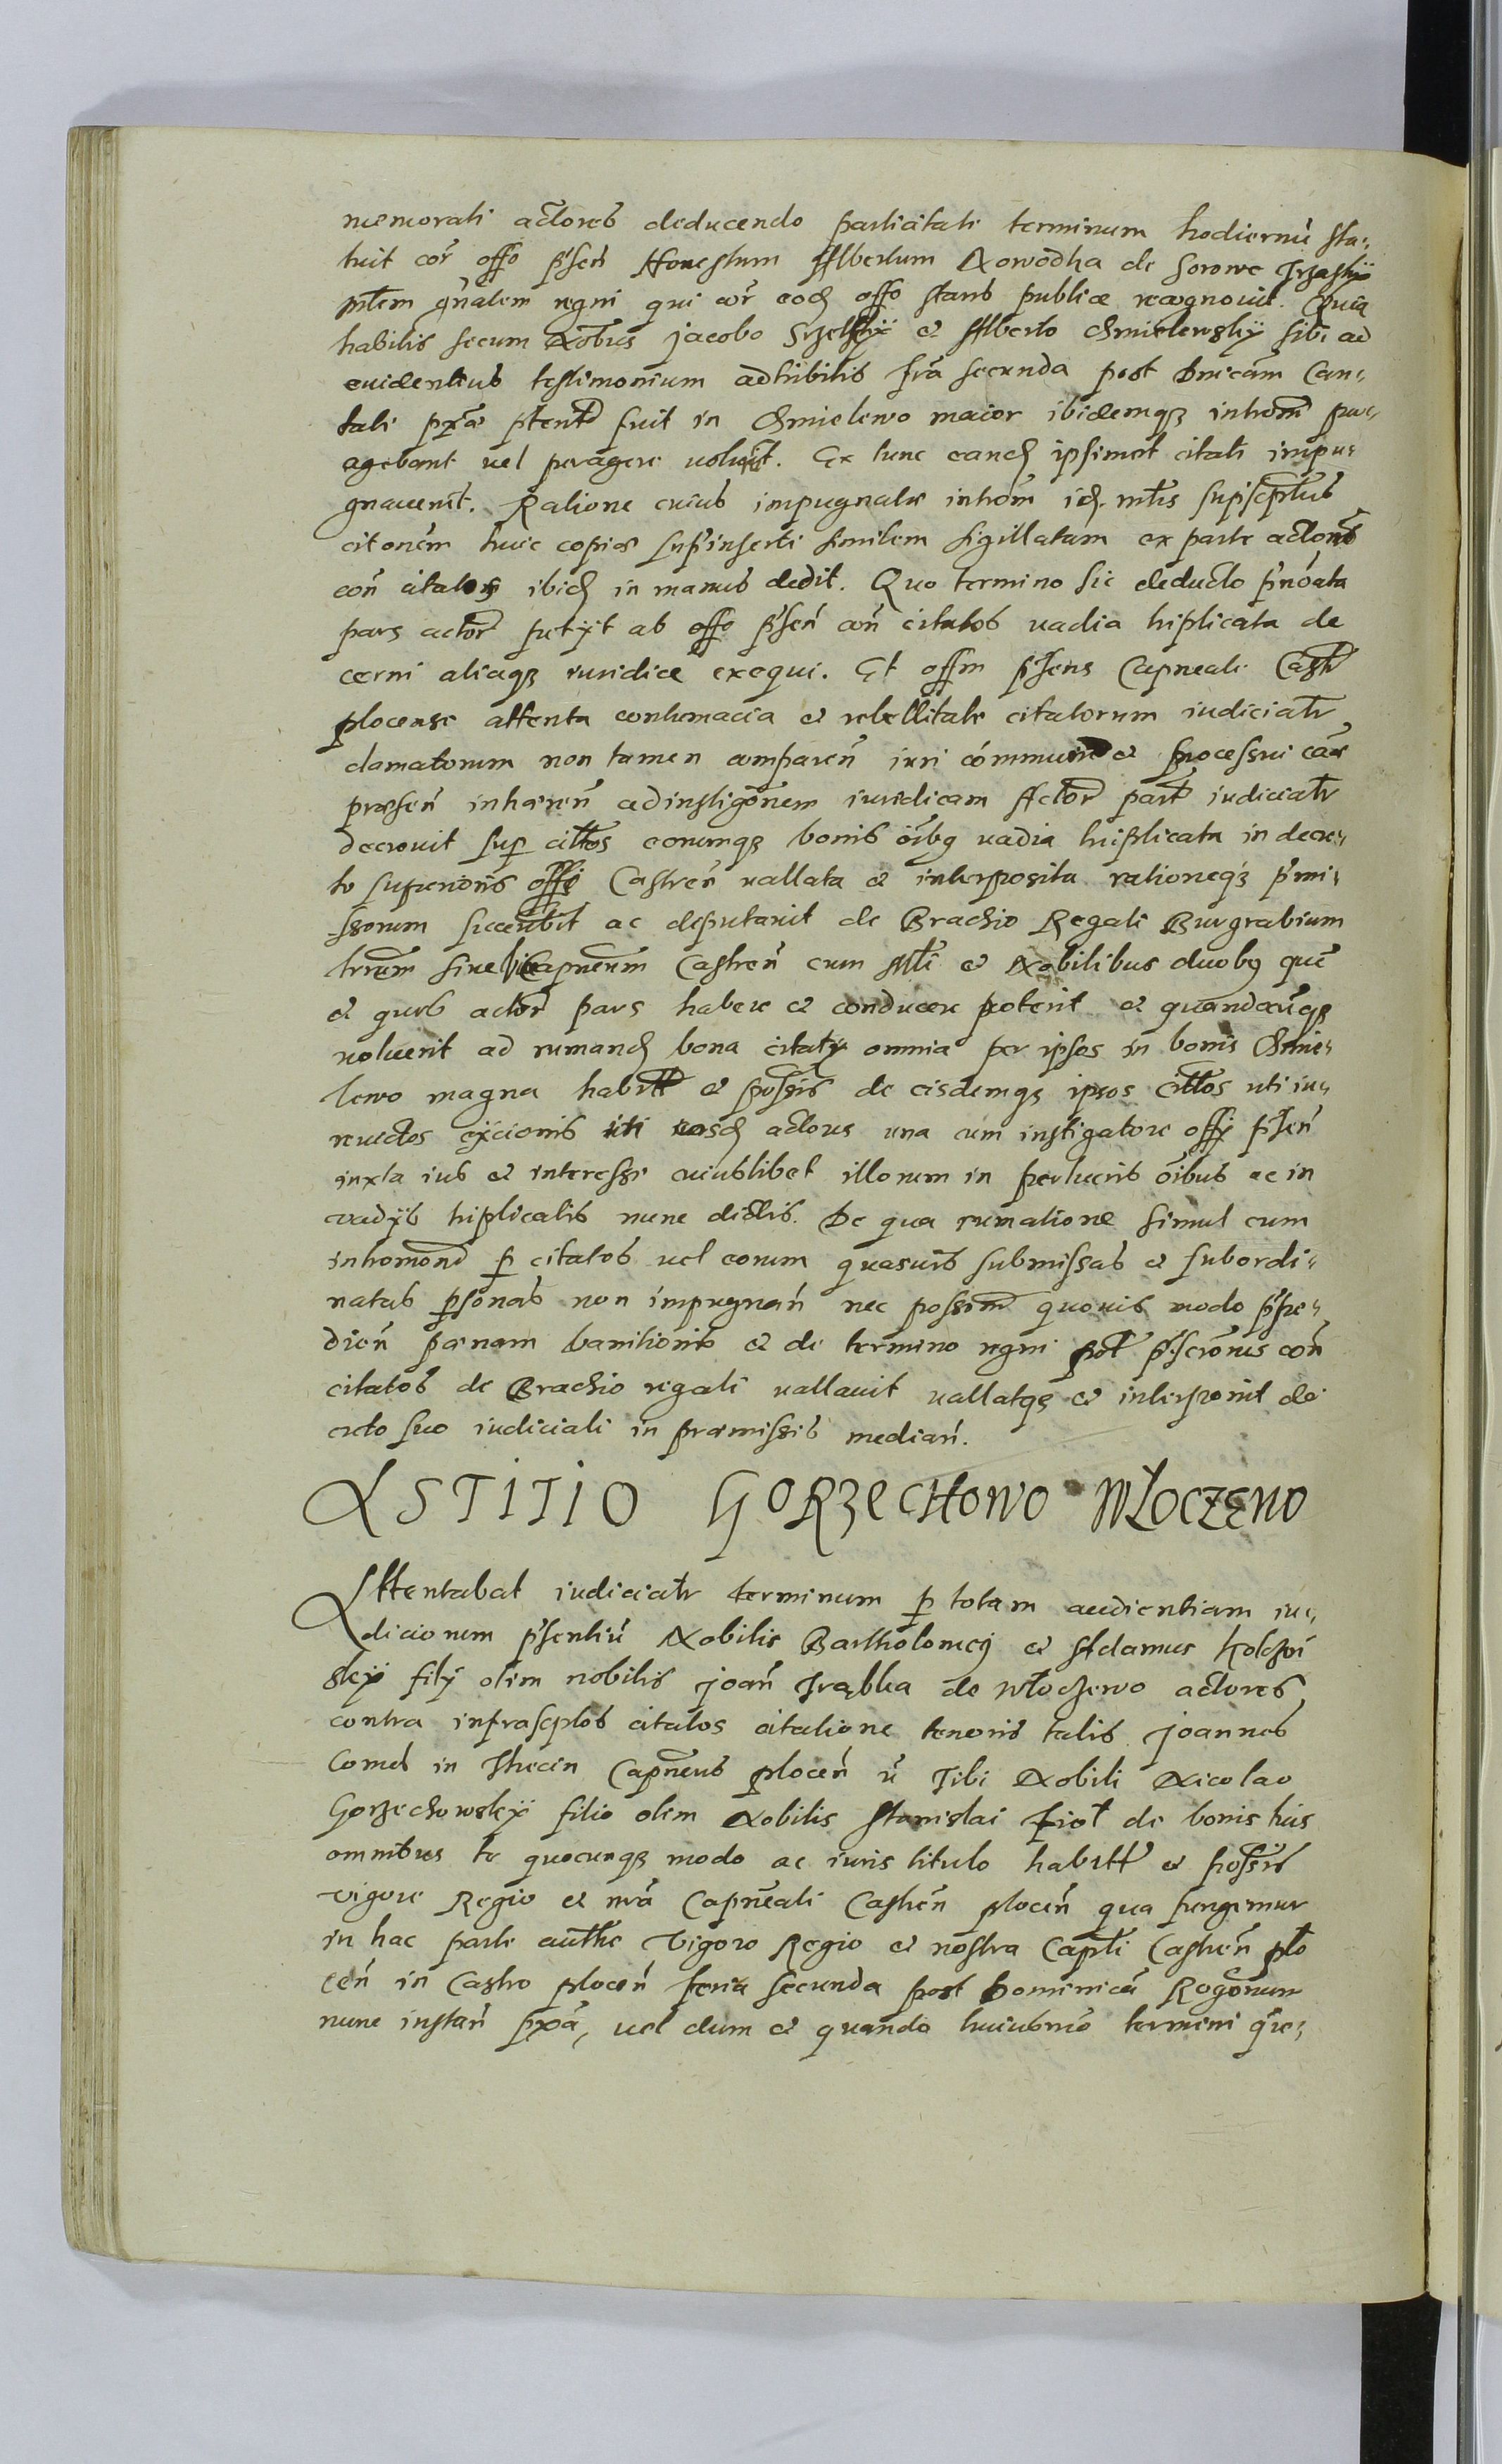 memorati actores deducendo particitati terminum hodiernũ sta-
tuit cor̃ offo p̃sen̄ Honestum Albertum Nowodha de Sorowe
mlem gñalem regni qui cor̃ eod̨ offo stans publice recognouit. Quia
habitis secum Nobus Jacobo Srzelskÿ et Alberto Chmielewskÿ sibi ad
euidentius testimonium adhibitis fr̃a secunda post Dnicam̃ Can-
tate pxa ptent fuit in Chmielewo maior ibidemqꝫ introm̃ per-
agebant uel peragere uoluit. Ex tunc eand̨ ipsimet citati impu-
gnauerũt. Ratione cuius impugnate introm̃ id̨. mlis supscptus
citonẽm huic copiæ sup̃inserti similem sigillatam ex parte actorũ
con̄ citatos ibid̨ in manus dedit. Quo termino sic deducto p̃noata
pars actor̃ petÿt ab offo p̃sen̄ con̄ citatos uadia triplicata de
cerni aliaqꝫ iuridice exequi. Et offm p̃sens Capneale Castr̃
plocense attenta contumacia et rebellitate citatorum iudicialr̃
clamatorum non tamen comparen̄ iuri communi et processui causæ
præsen̄ inhæren̄ ad instigõnem iuridicam Actor̃ part̃ iudicialr̃
decreuit sup cittos eorumqꝫ bonis õibꝫ uadia triplicata in decre-
to superioris offi Castren̄ uallata et interposita rationeqꝫ p̃mi-
ssorum succubit ac deputauit de Brachio Regali Burgrabium
trrem siue Capneum̃ Castren̄ cum Mli et Nobilibus duobꝫ que
et quos actor̃ pars habere et conducere poterit et quandocũqꝫ
uoluerit ad rumand̨ bona citatꝝ omnia per ipsos in bonis Chmie-
lewo magna habitt et possis de eisdemqꝫ ipsos cittos uti iu-
reuictos eÿcionis uti eosd̨ actores una cum instigatore offi p̃sen̄
iuxta ius et interesse cuiuslibet illorum in perlucris õibus ac in
vadÿs triplicatis nunc dictis. De qua rumatione simul cum
intromond p citatos uel eorum quasuis submissas et subordi-
natas psonas non impugnan̄ nec possind quouis modo p̃pe-
dien̄ pœnam banitionis et de termino regni post p̃scrones con̄
citatos de Brachio regali uallauit uallatqꝫ et interponit de
creto suo iudiciali in præmissis median̄.
ASTITIO GORZECHOWO WŁOCZEWO
Attentabat iudicialr̃ terminum p totam audientiam iu-
diciorum p̃sentiũ Nobilis Bartholomeÿ et Adamus
skÿ filÿ olim nobilis Joan̄ Trąbka de Włoczewo actores
contra infrascptos citatos citatione tenoris talis. Joannes
Comes in Thecin Capneus plocen̄ ũ Tibi Nobili Nicolao
Gorzechowskÿ filio olim Nobilis Stanislai Fiol de bonis tuis
omnibus te quocunqꝫ modo ac iuris titulo habitt et possis
vigore Regio et nr̃a Capneali Castren̄ plocen̄ qua fungimur
in hac parte authe Vigore Regio et nostra Capli Castren̄ plo
cen̄ in Castro plocen̄ feria secunda post Dominicã Rogõnum
nunc instan̄ pxa, uel dum et quando huiusmõ termini que-